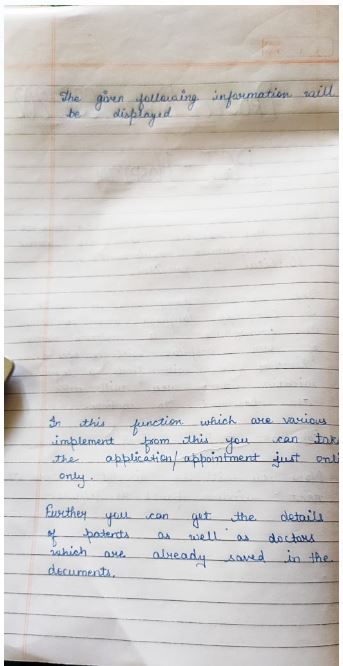 The given following information will
be displayed
In this function which are various
implement from this you can tak
the application/appointment just onli
only.
Further you can get the details
of patents as well as doctors
which are already saved in the
documents.